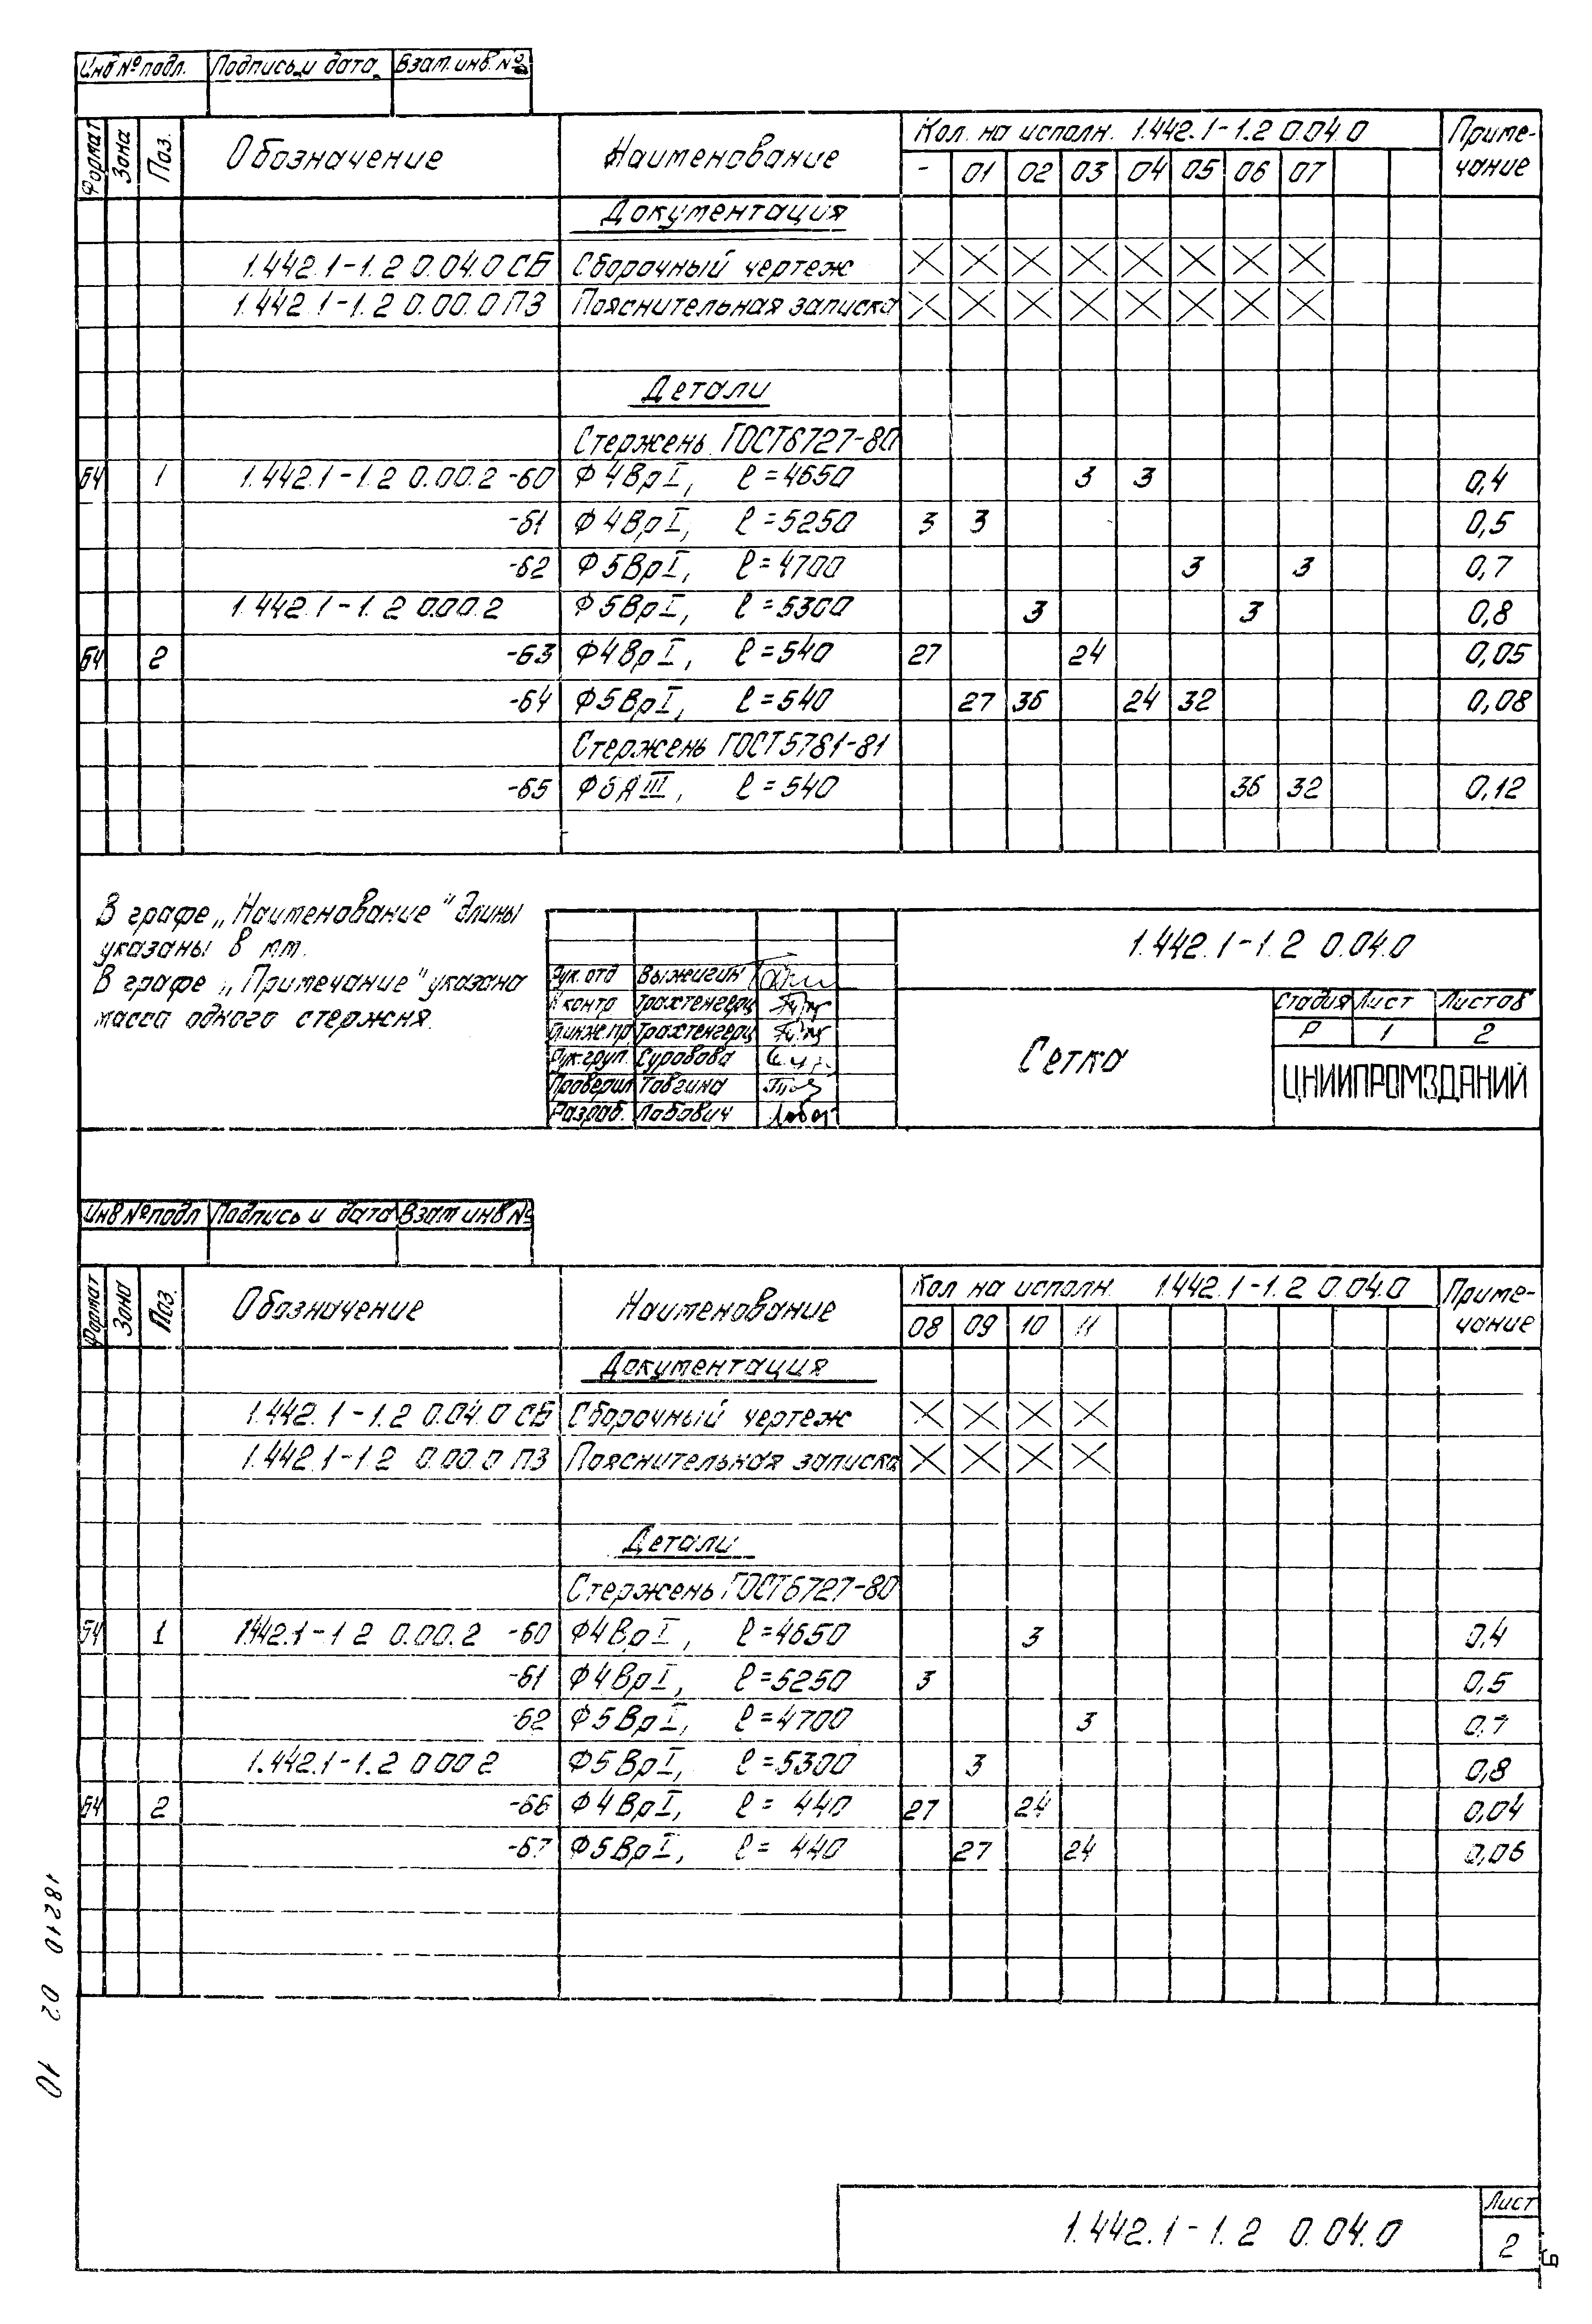 Инв № подл. Подпись и дата Взам. инв. №
Формат Зона Поз. Обозначение Наименование Кол. на исполн. 1.442.1-1.2 0.04.0 Приме-
- 01 02 03 04 05 06 07 чание
Документация
1.442.1-1.2 0.04.0 СБ Сборочный чертеж
1.442.1-1.2 0.00.0 ПЗ Пояснительная записка
Детали
Стержень ГОСТ6727-80
БЧ 1 1.442.1-1.2 0.00.2 -60 Ф4ВрI, ℓ=4650 3 3 0,4
-61 Ф4ВрI, ℓ=5250 3 3 0,5
-62 Ф5ВрI, ℓ=4700 3 3 0,7
1.442.1-1.2 0.00.2 Ф5ВрI, ℓ=5300 3 3 0,8
БЧ 2 -63 Ф4ВрI, ℓ=540 27 24 0,05
-64 Ф5ВрI, ℓ=540 27 36 24 32 0,08
Стержень ГОСТ5781-81
-65 Ф6АIII, ℓ=540 36 32 0,12
В графе „Наименование" длины
указаны в мм.
В графе „Примечание" указана
масса одного стержня.
1.442.1-1.2 0.04.0
Рук. отд Выжигин
Н контр Трахтенгерц
Гл.инж.пр. Трахтенгерц
Рук.груп. Суровова
Проверил Товгина
Разраб. Лабович
Сетка
Стадия Лист Листов
Р 1 2
ЦНИИПРОМЗДАНИЙ
Инв № подл Подпись и дата Взам инв №
Формат Зона Поз. Обозначение Наименование Кол на исполн. 1.442.1-1.2 0.04.0 Приме-
08 09 10 11 чание
Документация
1.442.1-1.2 0.04.0 СБ Сборочный чертеж
1.442.1-1.2 0.00.0 ПЗ Пояснительная записка
Детали
Стержень ГОСТ6727-80
БЧ 1 1.442.1-1 2 0.00.2 -60 Ф4ВрI, ℓ=4650 3 0,4
-61 Ф4ВрI, ℓ=5250 3 0,5
-62 Ф5ВрI, ℓ=4700 3 0,7
1.442.1-1.2 0 00 2 Ф5ВрI, ℓ=5300 3 0,8
БЧ 2 -66 Ф4ВрI, ℓ= 440 27 24 0,04
-67 Ф5ВрI, ℓ= 440 27 24 0,06
18210 02 10
1.442.1-1.2 0.04.0
Лист
2